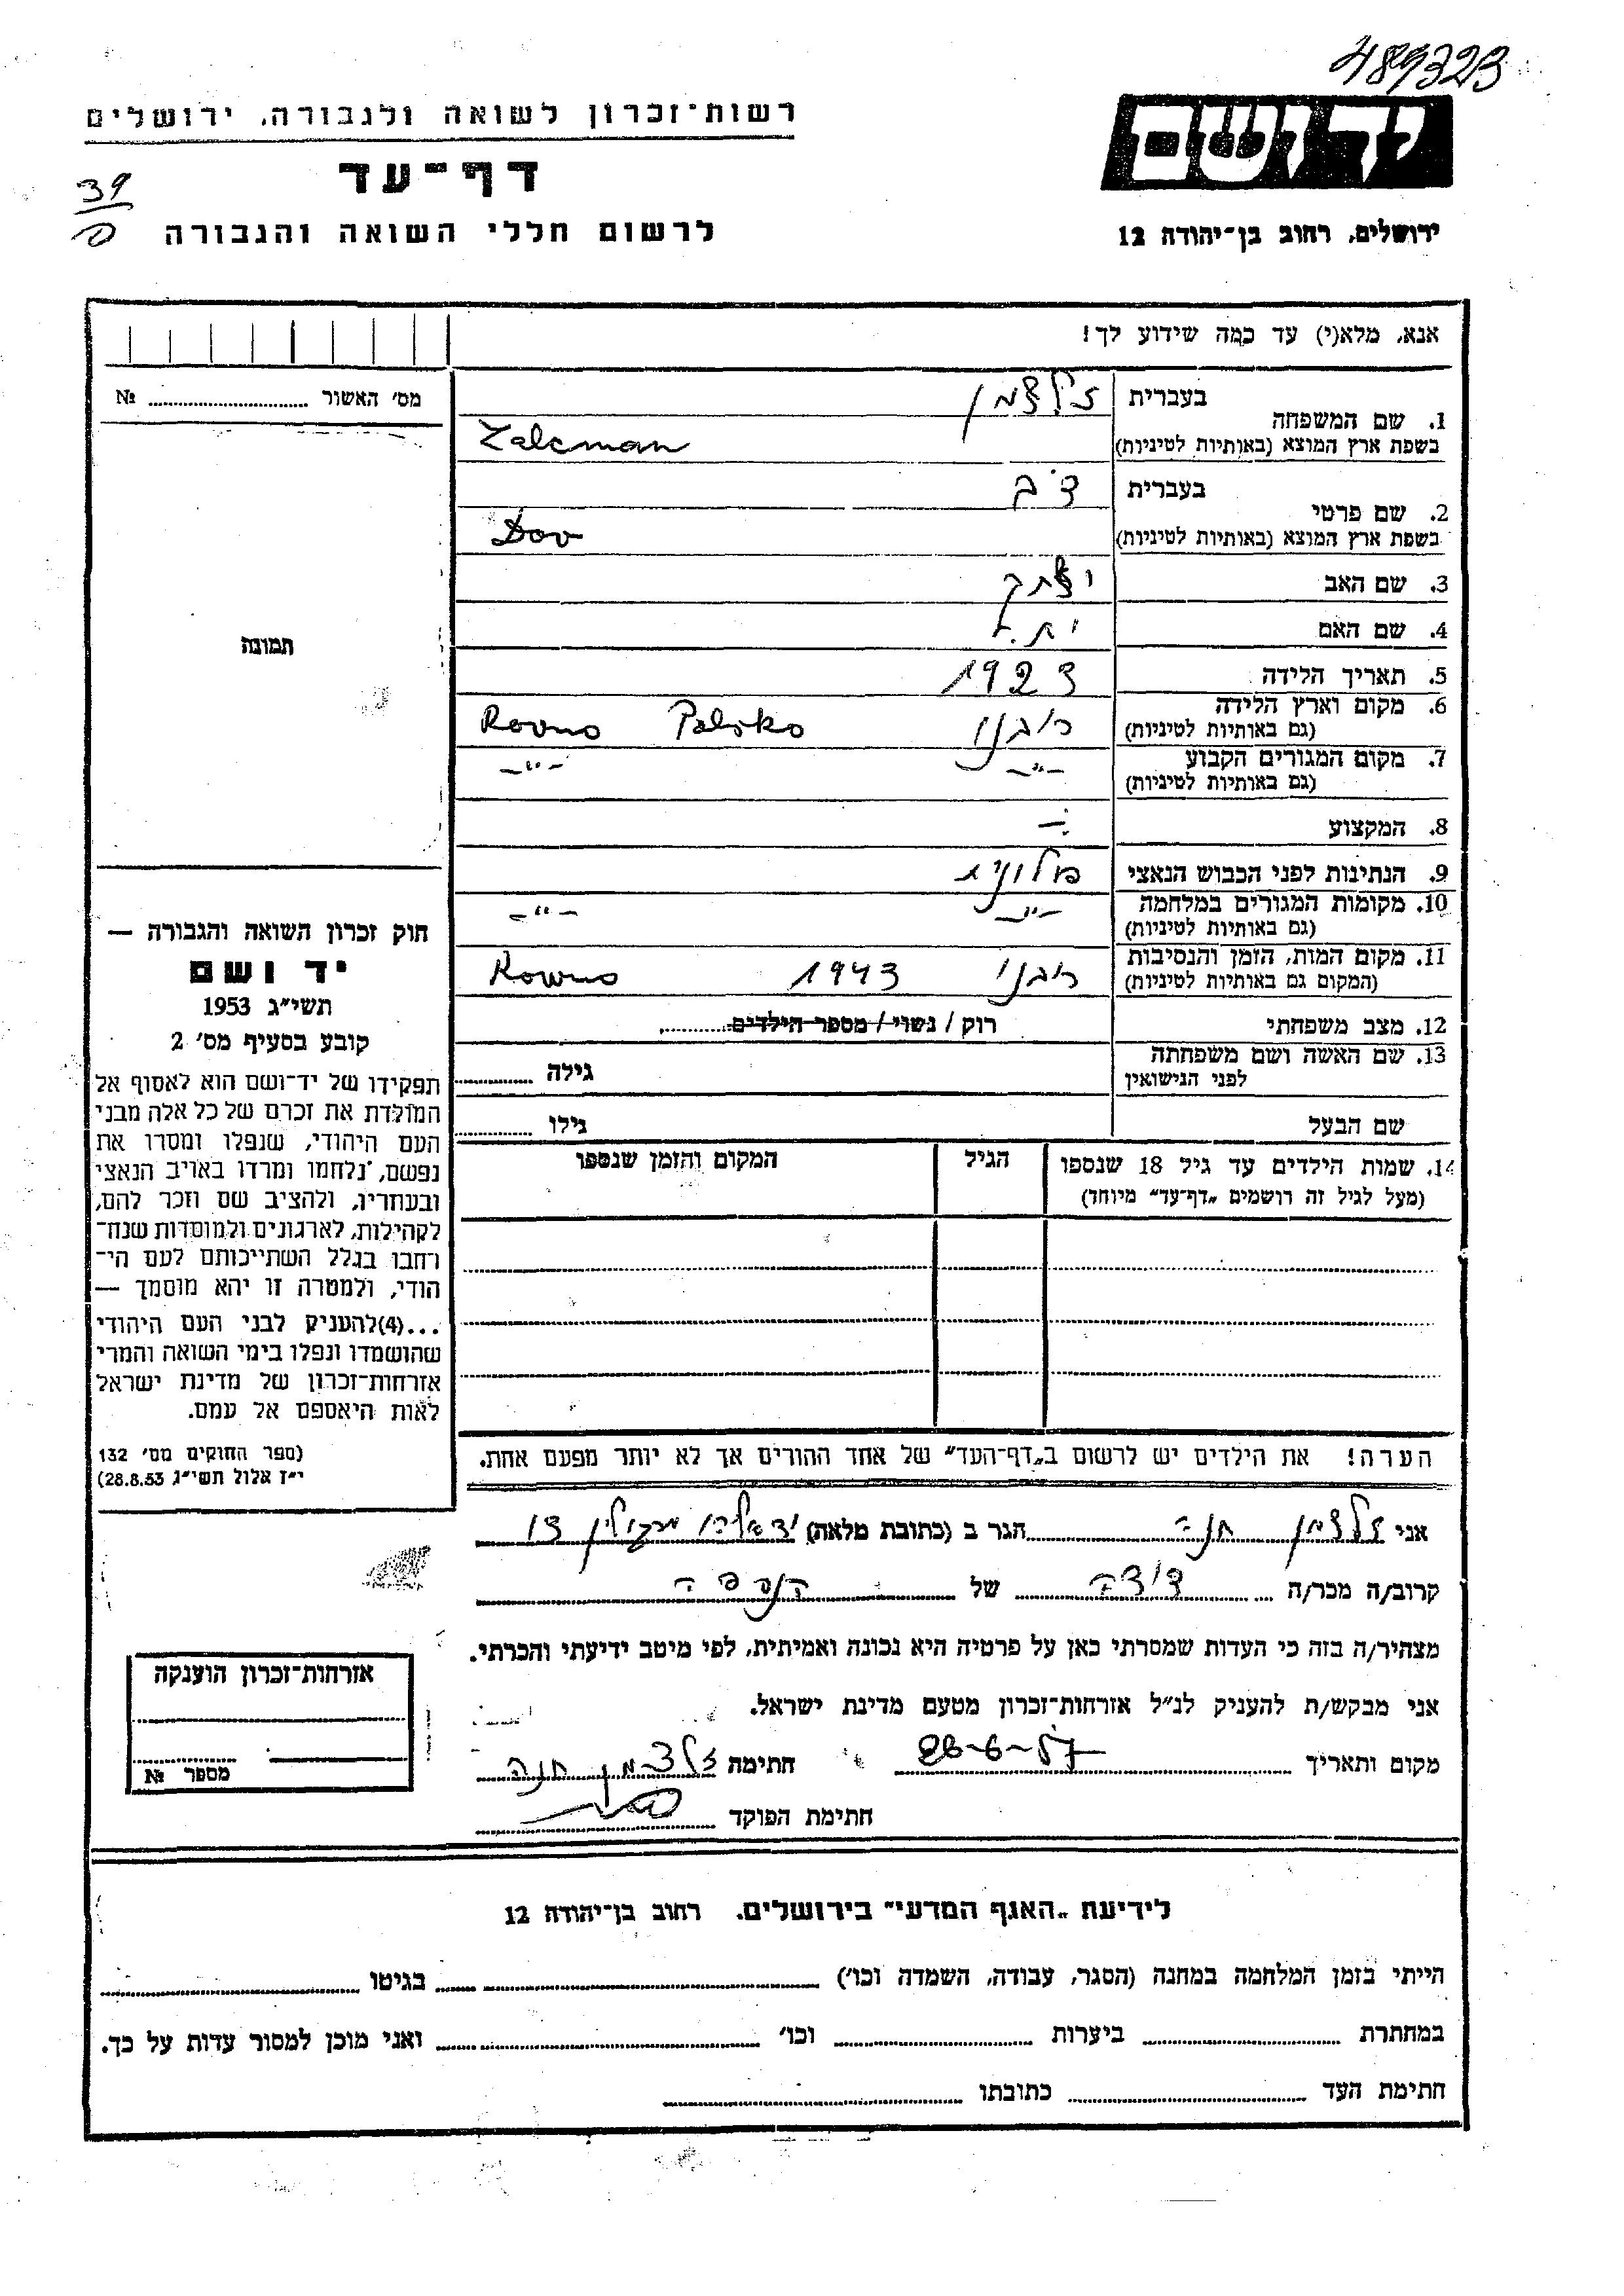 489323
יד ושם
רשות-זכרון לשואה ולגבורה, ירושלים
דף-עד
39
לרשום חללי השואה והגבורה
ירושלים, רחוב בן-יהודה 12
אנא, מלא(י) עד כמה שידוע לך!
מס׳ האשור № 
1. שם המשפחה
בעברית זלצמן
בשפת ארץ המוצא (באותיות לטיניות) Zalcman
2. שם פרטי
בעברית דב
בשפת ארץ המוצא (באותיות לטיניות) Dov
3. שם האב יצחק
4. שם האם
5. תאריך הלידה 1923
6. מקום וארץ הלידה
(גם באותיות לטיניות) רובנו Polska Rovno
7. מקום המגורים הקבוע -"- -"-
(גם באותיות לטיניות)
8. המקצוע
9. הנתינות לפני הכבוש הנאצי פולונית
10. מקומות המגורים במלחמה -"- -"-
(גם באותיות לטיניות)
11. מקום המות, הזמן והנסיבות
(המקום גם באותיות לטיניות) רובנו 1943 Rowno
12. מצב משפחתי רוק / נשוי / מספר הילדים
13. שם האשה ושם משפחתה
לפני הנישואין גילה
שם הבעל גילו
14. שמות הילדים עד גיל 18 שנספו הגיל המקום והזמן שנספו
(מעל לגיל זה רושמים „דף-עד״ מיוחד)
הערה! את הילדים יש לרשום ב„דף-העד״ של אחד ההורים אך לא יותר מפעם אחת.
תמונה
חוק זכרון השואה והגבורה —
יד ושם
תשי״ג 1953
קובע בסעיף מס׳ 2
תפקידו של יד-ושם הוא לאסוף אל
המולדת את זכרם של כל אלה מבני
העם היהודי, שנפלו ומסרו את
נפשם, נלחמו ומרדו באויב הנאצי
ובעוזריו, ולהציב שם וזכר להם,
לקהילות, לארגונים ולמוסדות שנח-
רחבו בגלל השתייכותם לעם הי-
הודי, ולמטרה זו יהא מוסמך —
...(4)להעניק לבני העם היהודי
שהושמדו ונפלו בימי השואה והמרי
אזרחות-זכרון של מדינת ישראל
לאות היאספם אל עמם.
(ספר החוקים מס׳ 132
י״ז אלול תשי״ג 28.8.53)
אני זלצמן חנה הגר ב (כתובת מלאה)
קרוב/ה מכר/ה דודה של הנספה
מצהיר/ה בזה כי העדות שמסרתי כאן על פרטיה היא נכונה ואמיתית, לפי מיטב ידיעתי והכרתי.
אני מבקש/ת להעניק לנ״ל אזרחות-זכרון מטעם מדינת ישראל.
מקום ותאריך 26-6-57 חתימה זלצמן חנה
חתימת הפוקד
אזרחות-זכרון הוענקה
מספר №
לידיעת „האגף המדעי״ בירושלים, רחוב בן-יהודה 12
הייתי בזמן המלחמה במחנה (הסגר, עבודה, השמדה וכו׳) בגיטו
במחתרת ביערות וכו׳ ואני מוכן למסור עדות על כך.
חתימת העד כתובתו